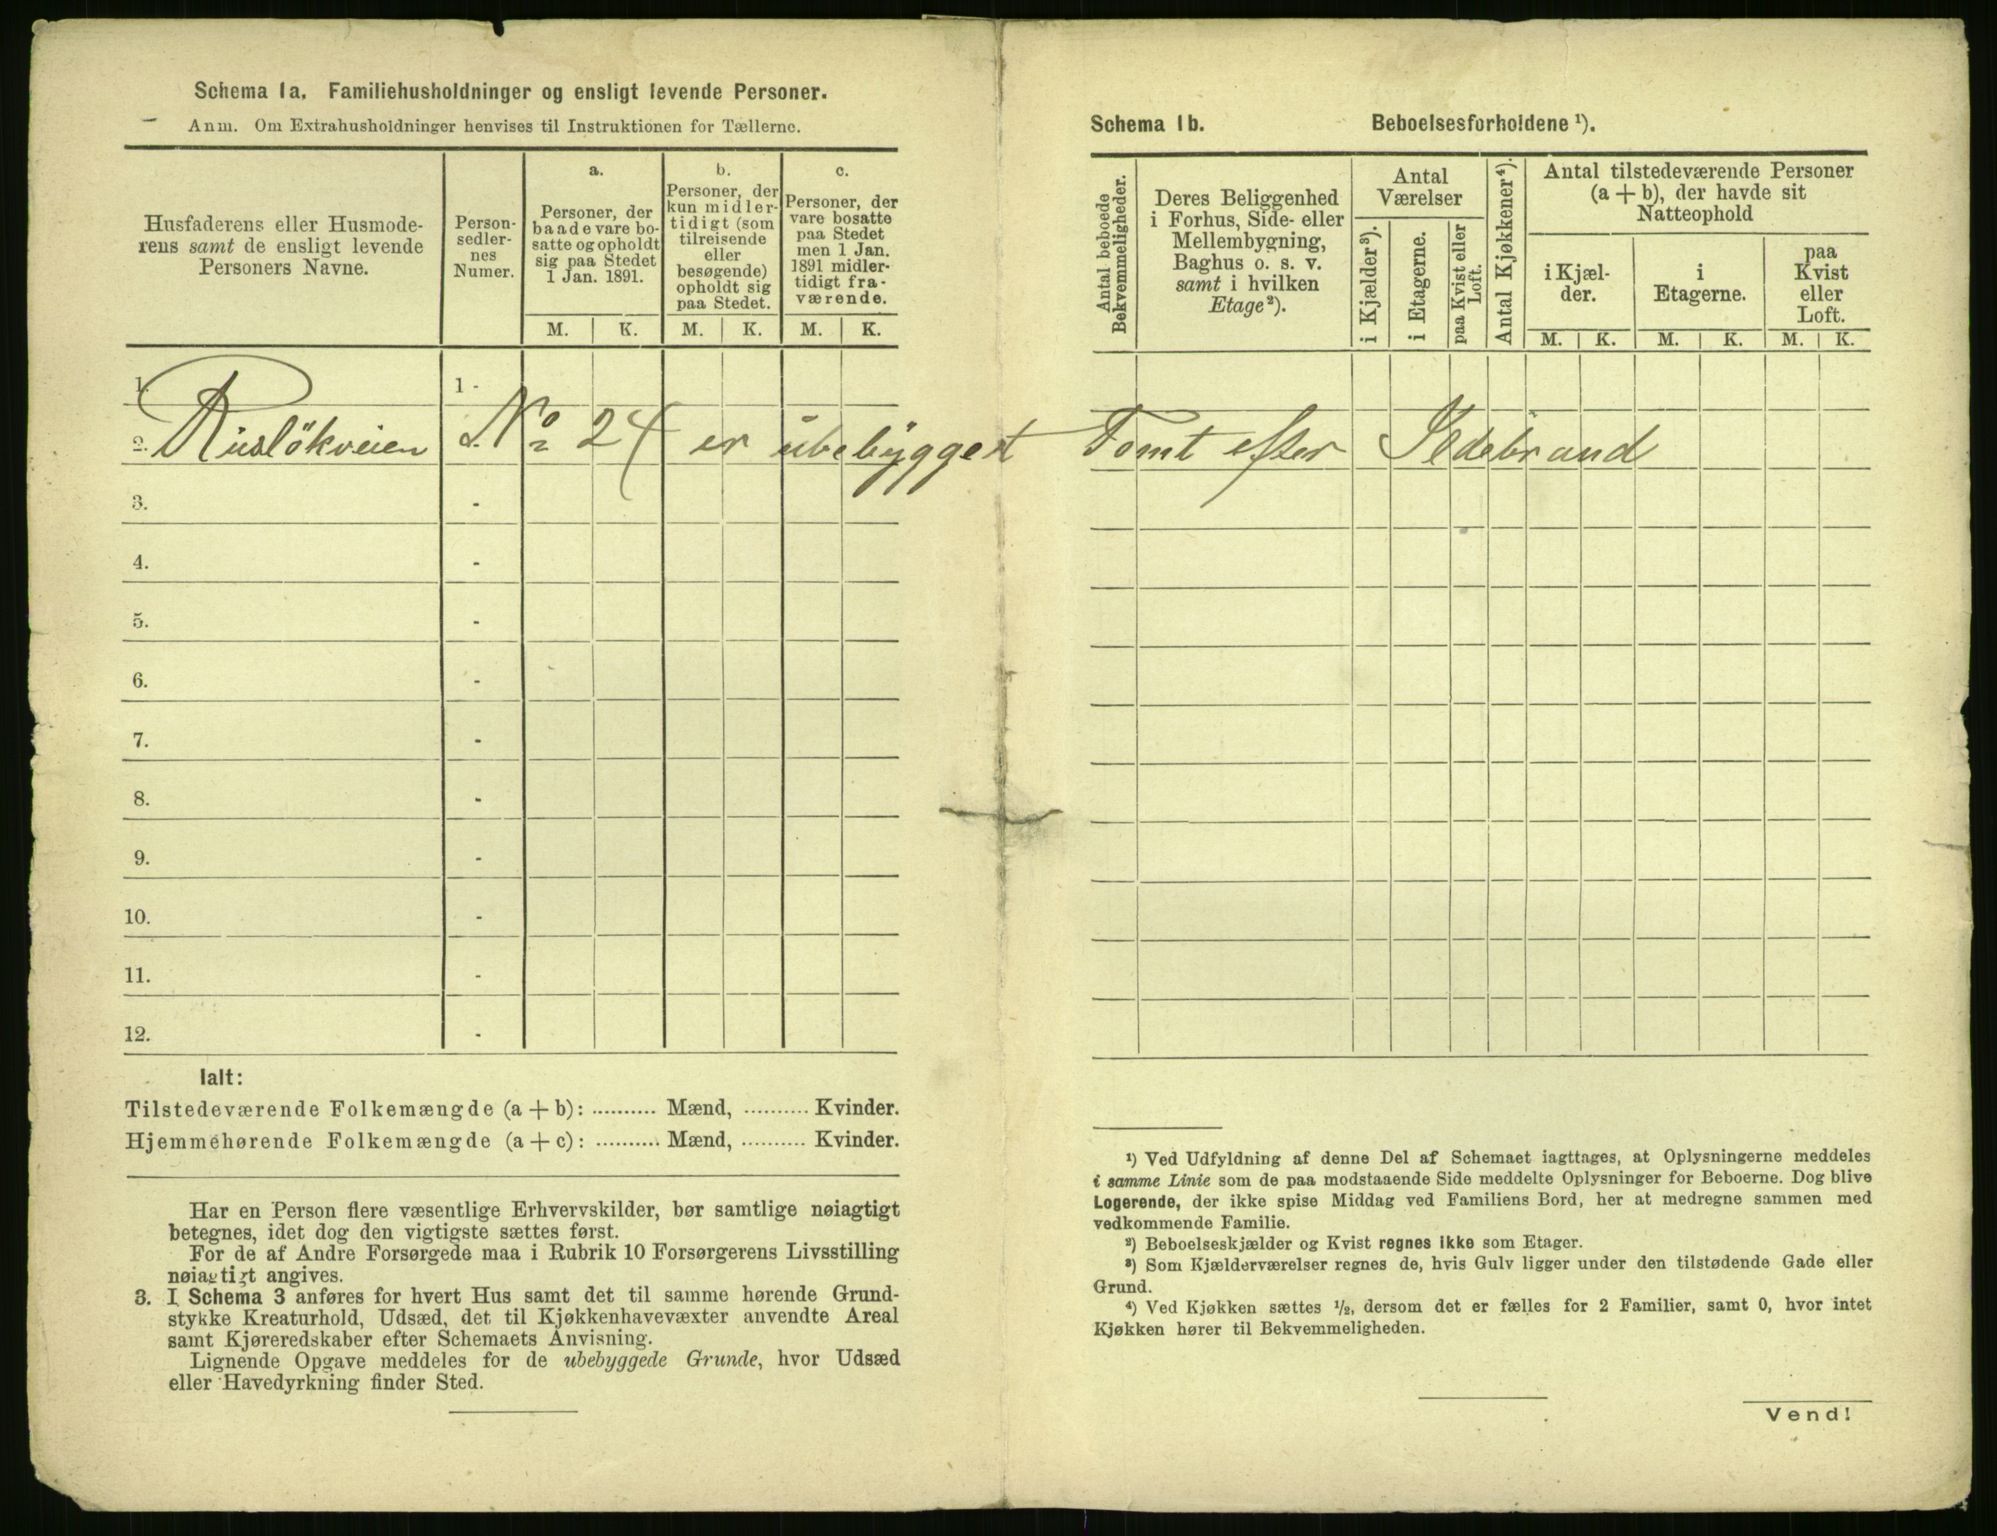 Schema 1a. Familiehusholdninger og ensligt levende Personer.
Anm. Om Extrahusholdninger henvises til Instruktionen for Tællerne.
Husfaderens eller Husmode-
rens samt de ensligt levende
Personers Navne.
Person-
sedler-
nes
Numer.
a.
Personer, der
baade vare bo-
satte og opholdt
sig paa Stedet
1 Jan. 1891.
b.
Personer, der
kun midler-
tidigt (som
tilreisende
eller
besøgende)
opholdt sig
paa Stedet.
c.
Personer, der
vare bosatte
paa Stedet
men 1 Jan.
1891 midler-
tidigt fra-
værende.
M. K. M. K. M. K.
1. 1 -
2. Rusløkveien No 24 er ubebygget
3. -
4. -
5. -
6. -
7. -
8. -
9. -
10. -
11. -
12. -
Ialt:
Tilstedeværende Folkemængde (a + b): .......... Mænd, .......... Kvinder.
Hjemmehørende Folkemængde (a + c): .......... Mænd, .......... Kvinder.
Har en Person flere væsentlige Erhvervskilder, bør samtlige nøiagtigt
betegnes, idet dog den vigtigste sættes først.
For de af Andre Forsørgede maa i Rubrik 10 Forsørgerens Livsstilling
nøiagtigt angives.
3. I Schema 3 anføres for hvert Hus samt det til samme hørende Grund-
stykke Kreaturhold, Udsæd, det til Kjøkkenhavevæxter anvendte Areal
samt Kjøreredskaber efter Schemaets Anvisning.
Lignende Opgave meddeles for de ubebyggede Grunde, hvor Udsæd
eller Havedyrkning finder Sted.
Schema 1b. Beboelsesforholdene ¹).
Antal beboede
Bekvemmeligheder.
Deres Beliggenhed
i Forhus, Side- eller
Mellembygning,
Baghus o. s. v.
samt i hvilken
Etage ²).
Antal
Værelser
i Kjælder ³).
i Etagerne.
paa Kvist eller
Loft.
Antal Kjøkkener ⁴).
Antal tilstedeværende Personer
(a + b), der havde sit
Natteophold
i Kjæl-
der.
i
Etagerne.
paa
Kvist
eller
Loft.
M. K. M. K. M. K.
Tomt efter Ildebrand
¹) Ved Udfyldning af denne Del af Schemaet iagttages, at Oplysningerne meddeles
i samme Linie som de paa modstaaende Side meddelte Oplysninger for Beboerne. Dog blive
Logerende, der ikke spise Middag ved Familiens Bord, her at medregne sammen med
vedkommende Familie.
²) Beboelseskjælder og Kvist regnes ikke som Etager.
³) Som Kjælderværelser regnes de, hvis Gulv ligger under den tilstødende Gade eller
Grund.
⁴) Ved Kjøkken sættes ½, dersom det er fælles for 2 Familier, samt 0, hvor intet
Kjøkken hører til Bekvemmeligheden.
Vend!